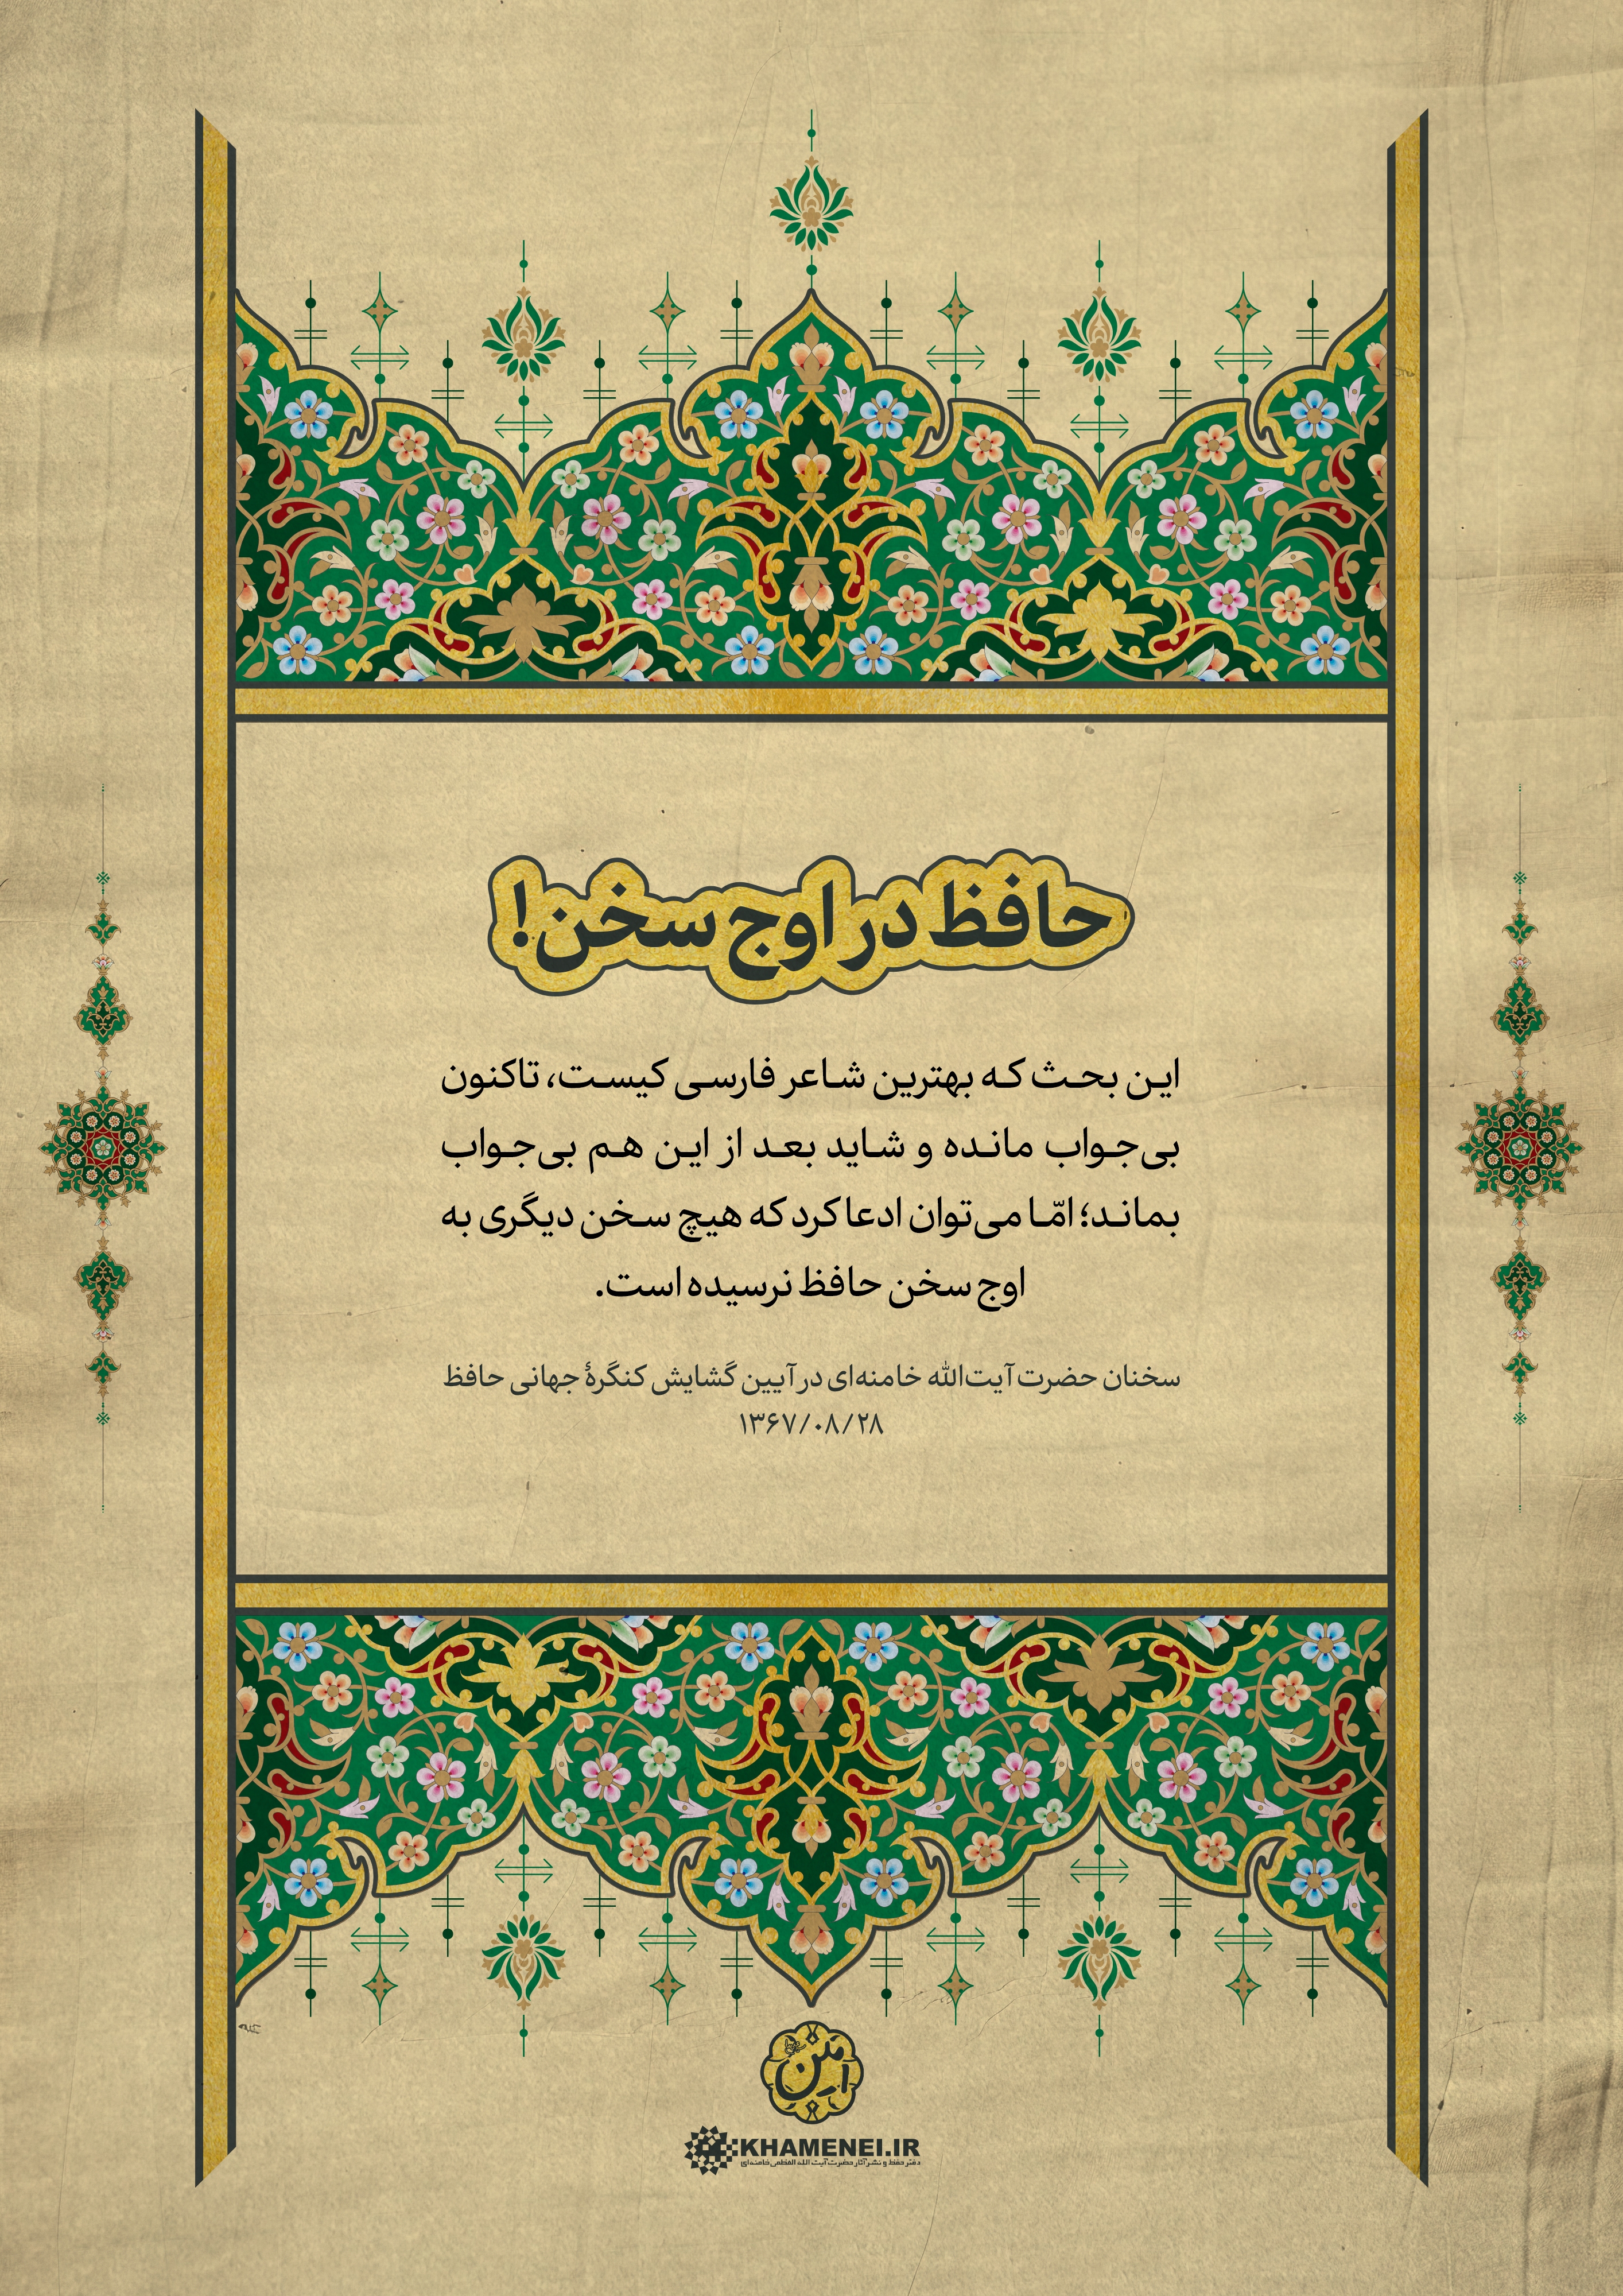 حافظ در اوج سخن!
این بحث که بهترین شاعر فارسی کیست، تاکنون
بی‌جواب مانده و شاید بعد از این هم بی‌جواب
بماند؛ امّا می‌توان ادعا کرد که هیچ سخن دیگری به
اوج سخن حافظ نرسیده است.
سخنان حضرت آیت‌الله خامنه‌ای در آیین گشایش کنگرهٔ جهانی حافظ
۱۳۶۷/۰۸/۲۸
KHAMENEI.IR
دفتر حفظ و نشر آثار حضرت آیت الله العظمی خامنه‌ای